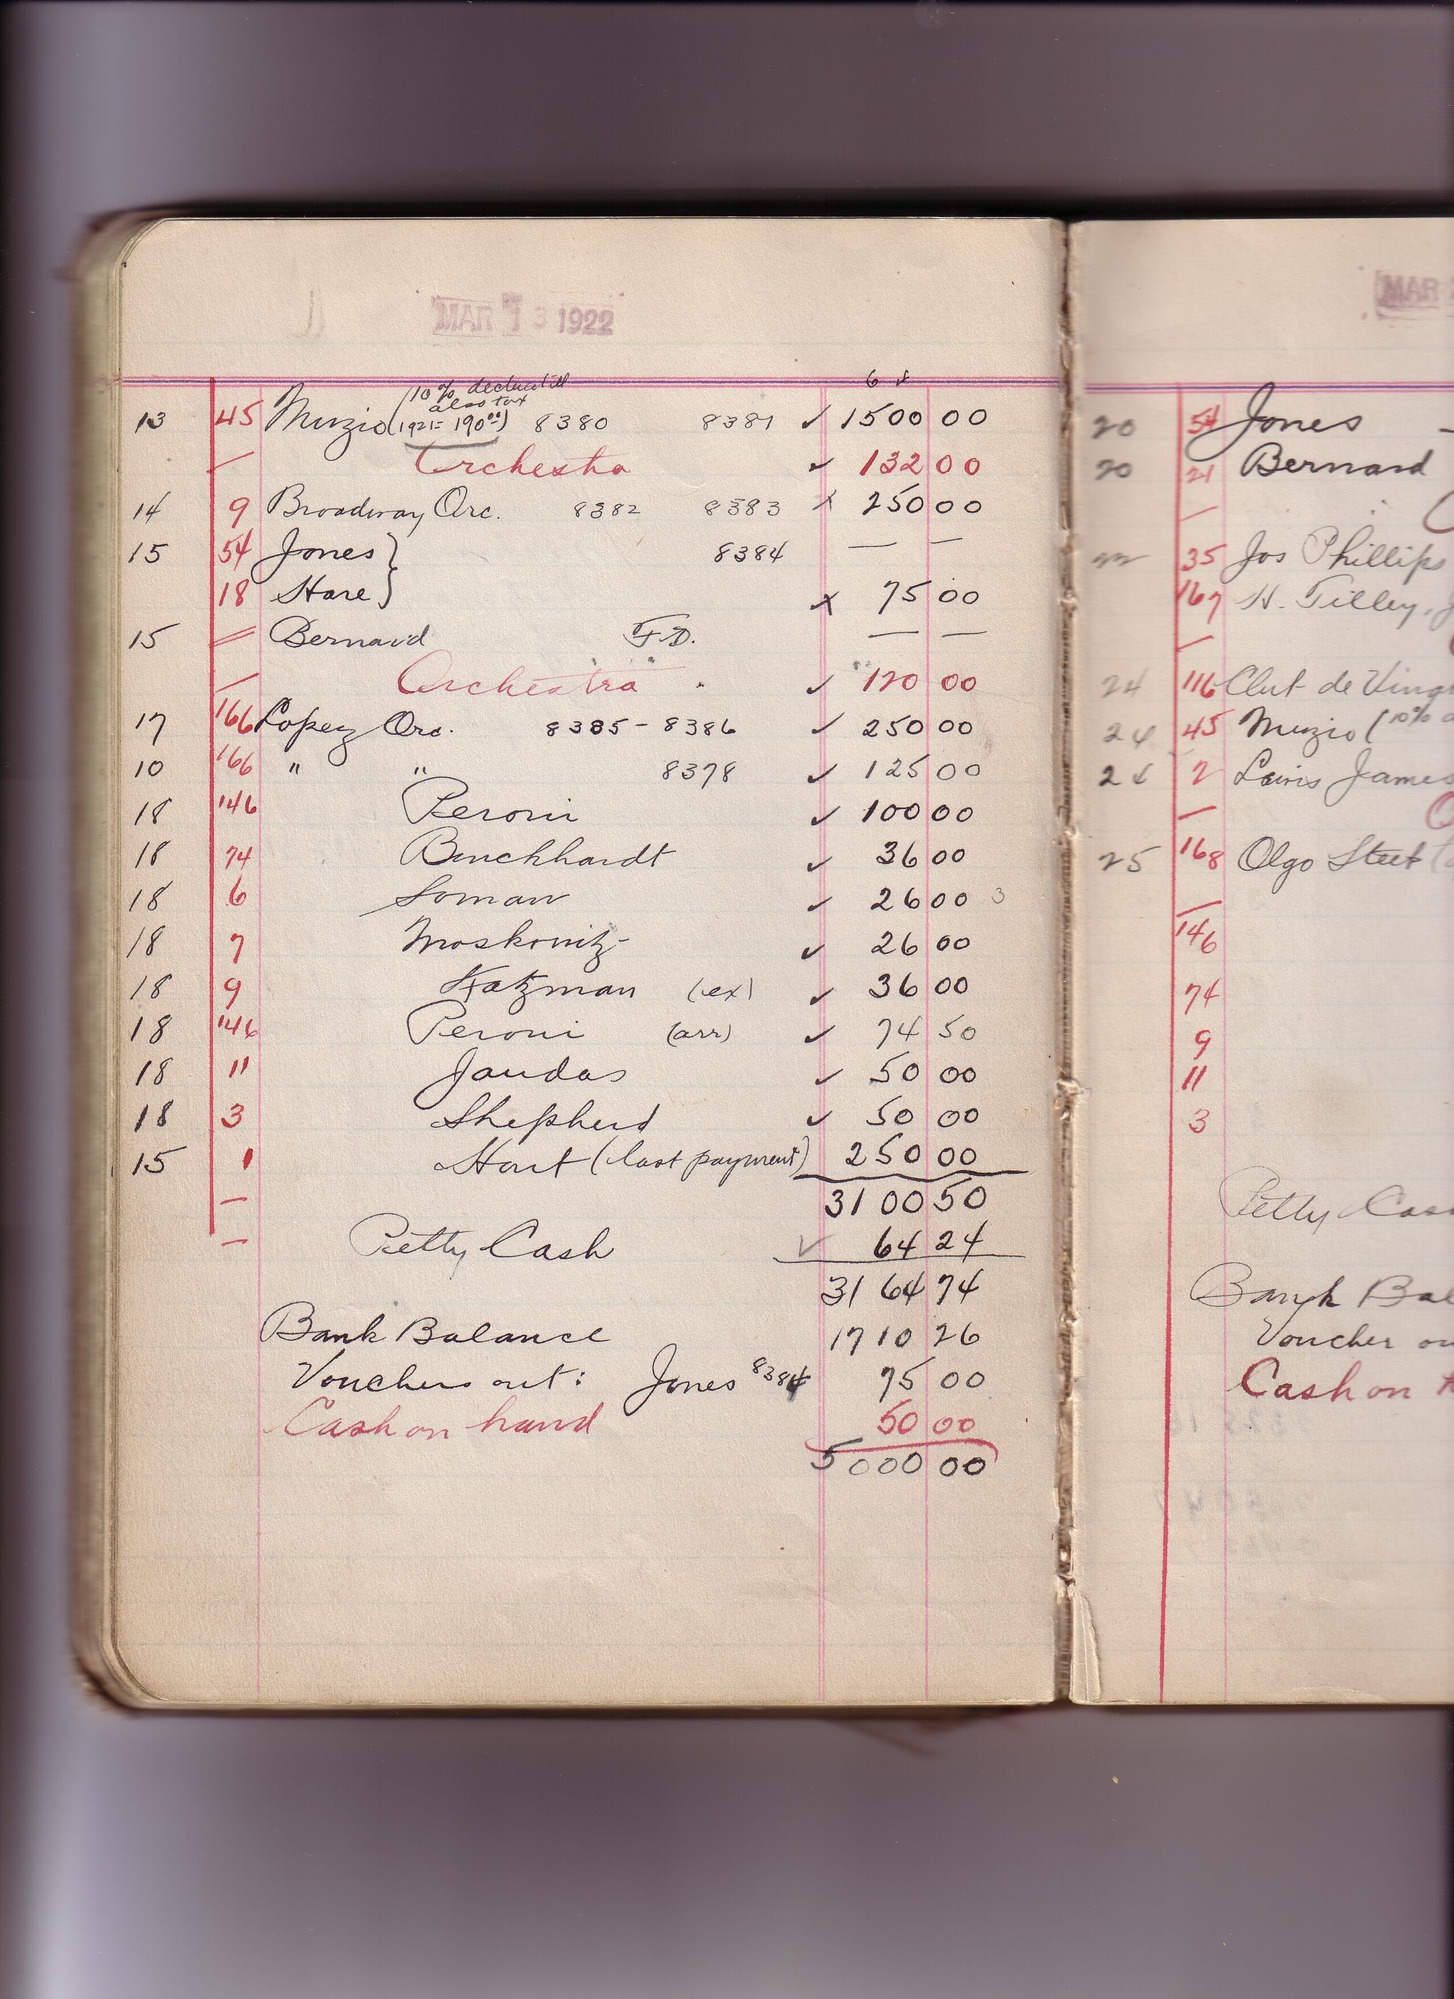 MAR 13 1922
13 45 Muzio (10% deducted also tax 1921 = 190.00) 8380 8381 ✓ 1500 00
— Orchestra ✓ 132 00
14 9 Broadway Orc. 8382 8383 x 250 00
15 54 Jones } 8384 — —
18 Hare } x 75 00
15 Bernard F.D. — —
— Orchestra ✓ 120 00
17 166 Lopez Orc. 8385 - 8386 ✓ 250 00
10 166 " " 8378 ✓ 125 00
18 146 Peroni ✓ 100 00
18 74 Burckhardt ✓ 36 00
18 6 Soman ✓ 26 00 3
18 7 Moskovitz ✓ 26 00
18 9 Katzman (ex) ✓ 36 00
18 146 Peroni (arr) ✓ 74 50
18 11 Jaudas ✓ 50 00
18 3 Shepherd ✓ 50 00
15 1 Hart (last payment) 250 00
— 3100 50
— Petty Cash ✓ 64 24
3164 74
Bank Balance 1710 26
Vouchers out: Jones 8384 75 00
Cash on hand 50 00
5000 00
MAR
20 54 Jones —
20 21 Bernard
—
22 35 Jos Phillips
167 H. Tilley, J
—
24 116 Clut de Vingt
24 45 Muzio (10%
24 2 Lewis James
—
25 168 Olgo Steet
—
146
74
9
11
3
Petty Cas
Bank Bal
Voucher ou
Cash on